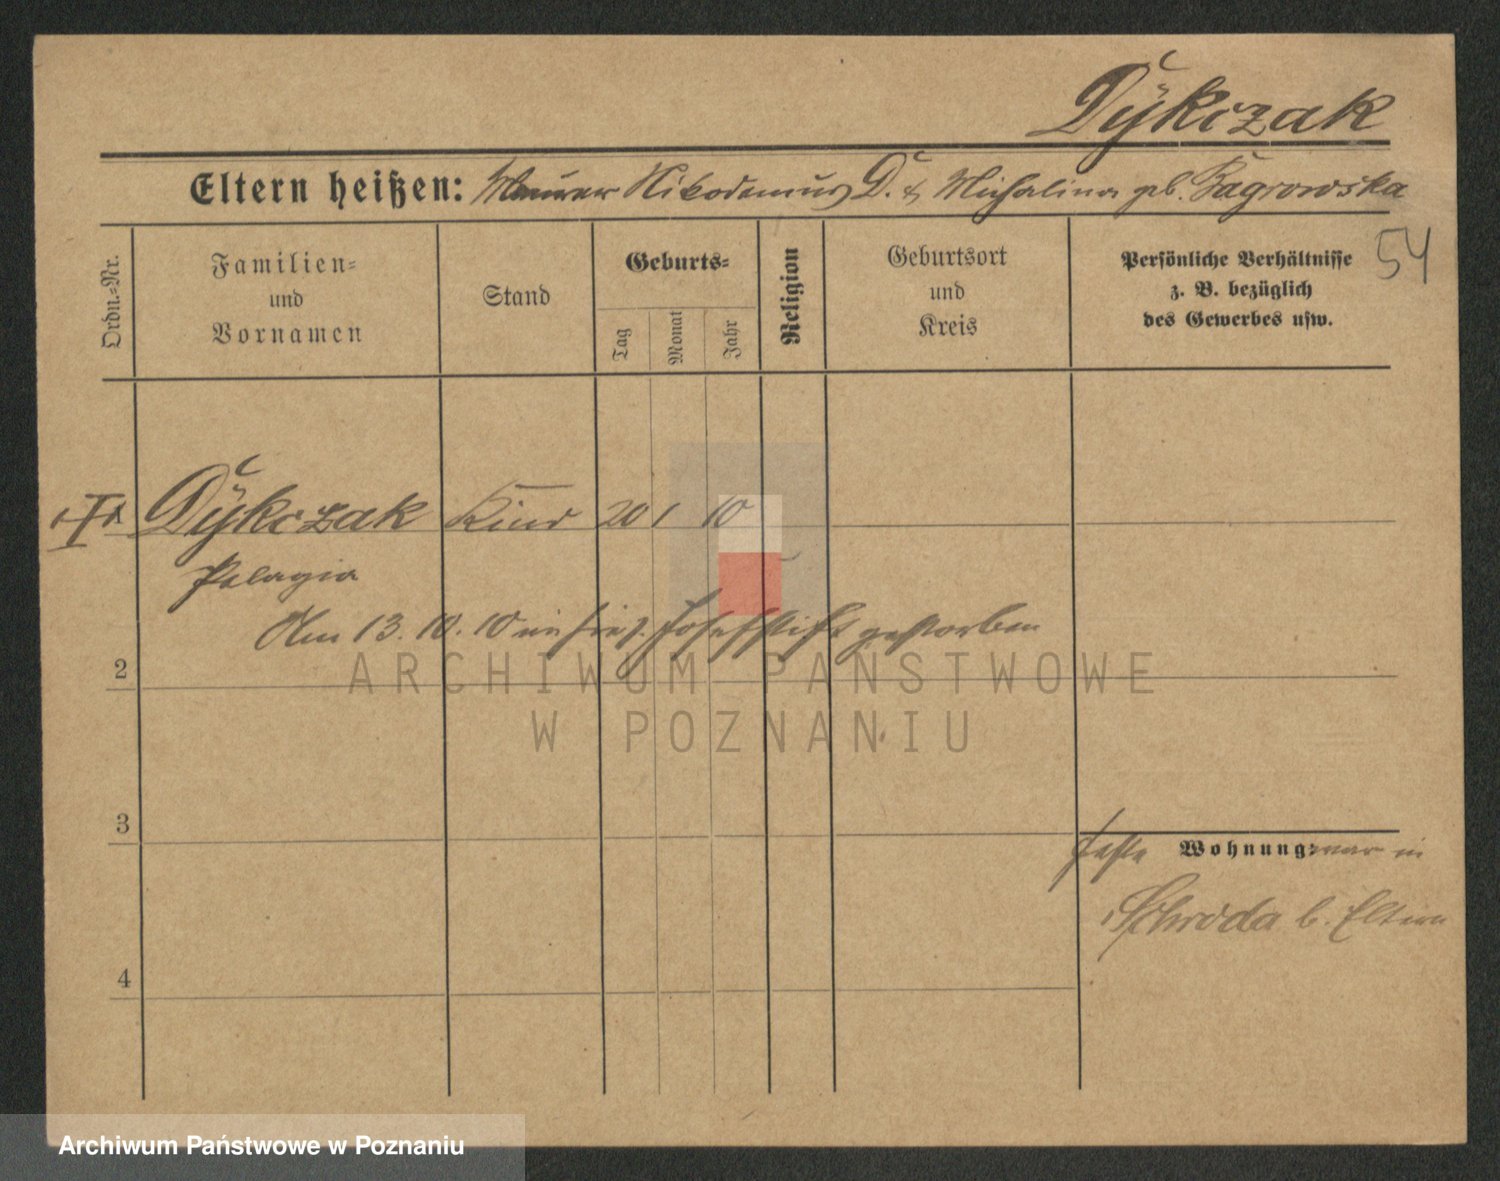 Dÿkczak
Eltern heißen: Maurer Nikodemus D. & Michalina geb. Bagrowska
54
Ordn.=Nr.
Familien=
und
Vornamen
Stand
Geburts=
Tag
Monat
Jahr
Religion
Geburtsort
und
Kreis
Persönliche Verhältnisse
z. B. bezüglich
des Gewerbes usw.
1 Dÿkczak Kind 20 1 10
Pelagia
Am 13. 10. 10 im hies. Josefstift gestorben
2
ARCHIWUM PAŃSTWOWE
W POZNANIU
3
feste Wohnung: war in
Schroda b. Eltern
4
Archiwum Państwowe w Poznaniu